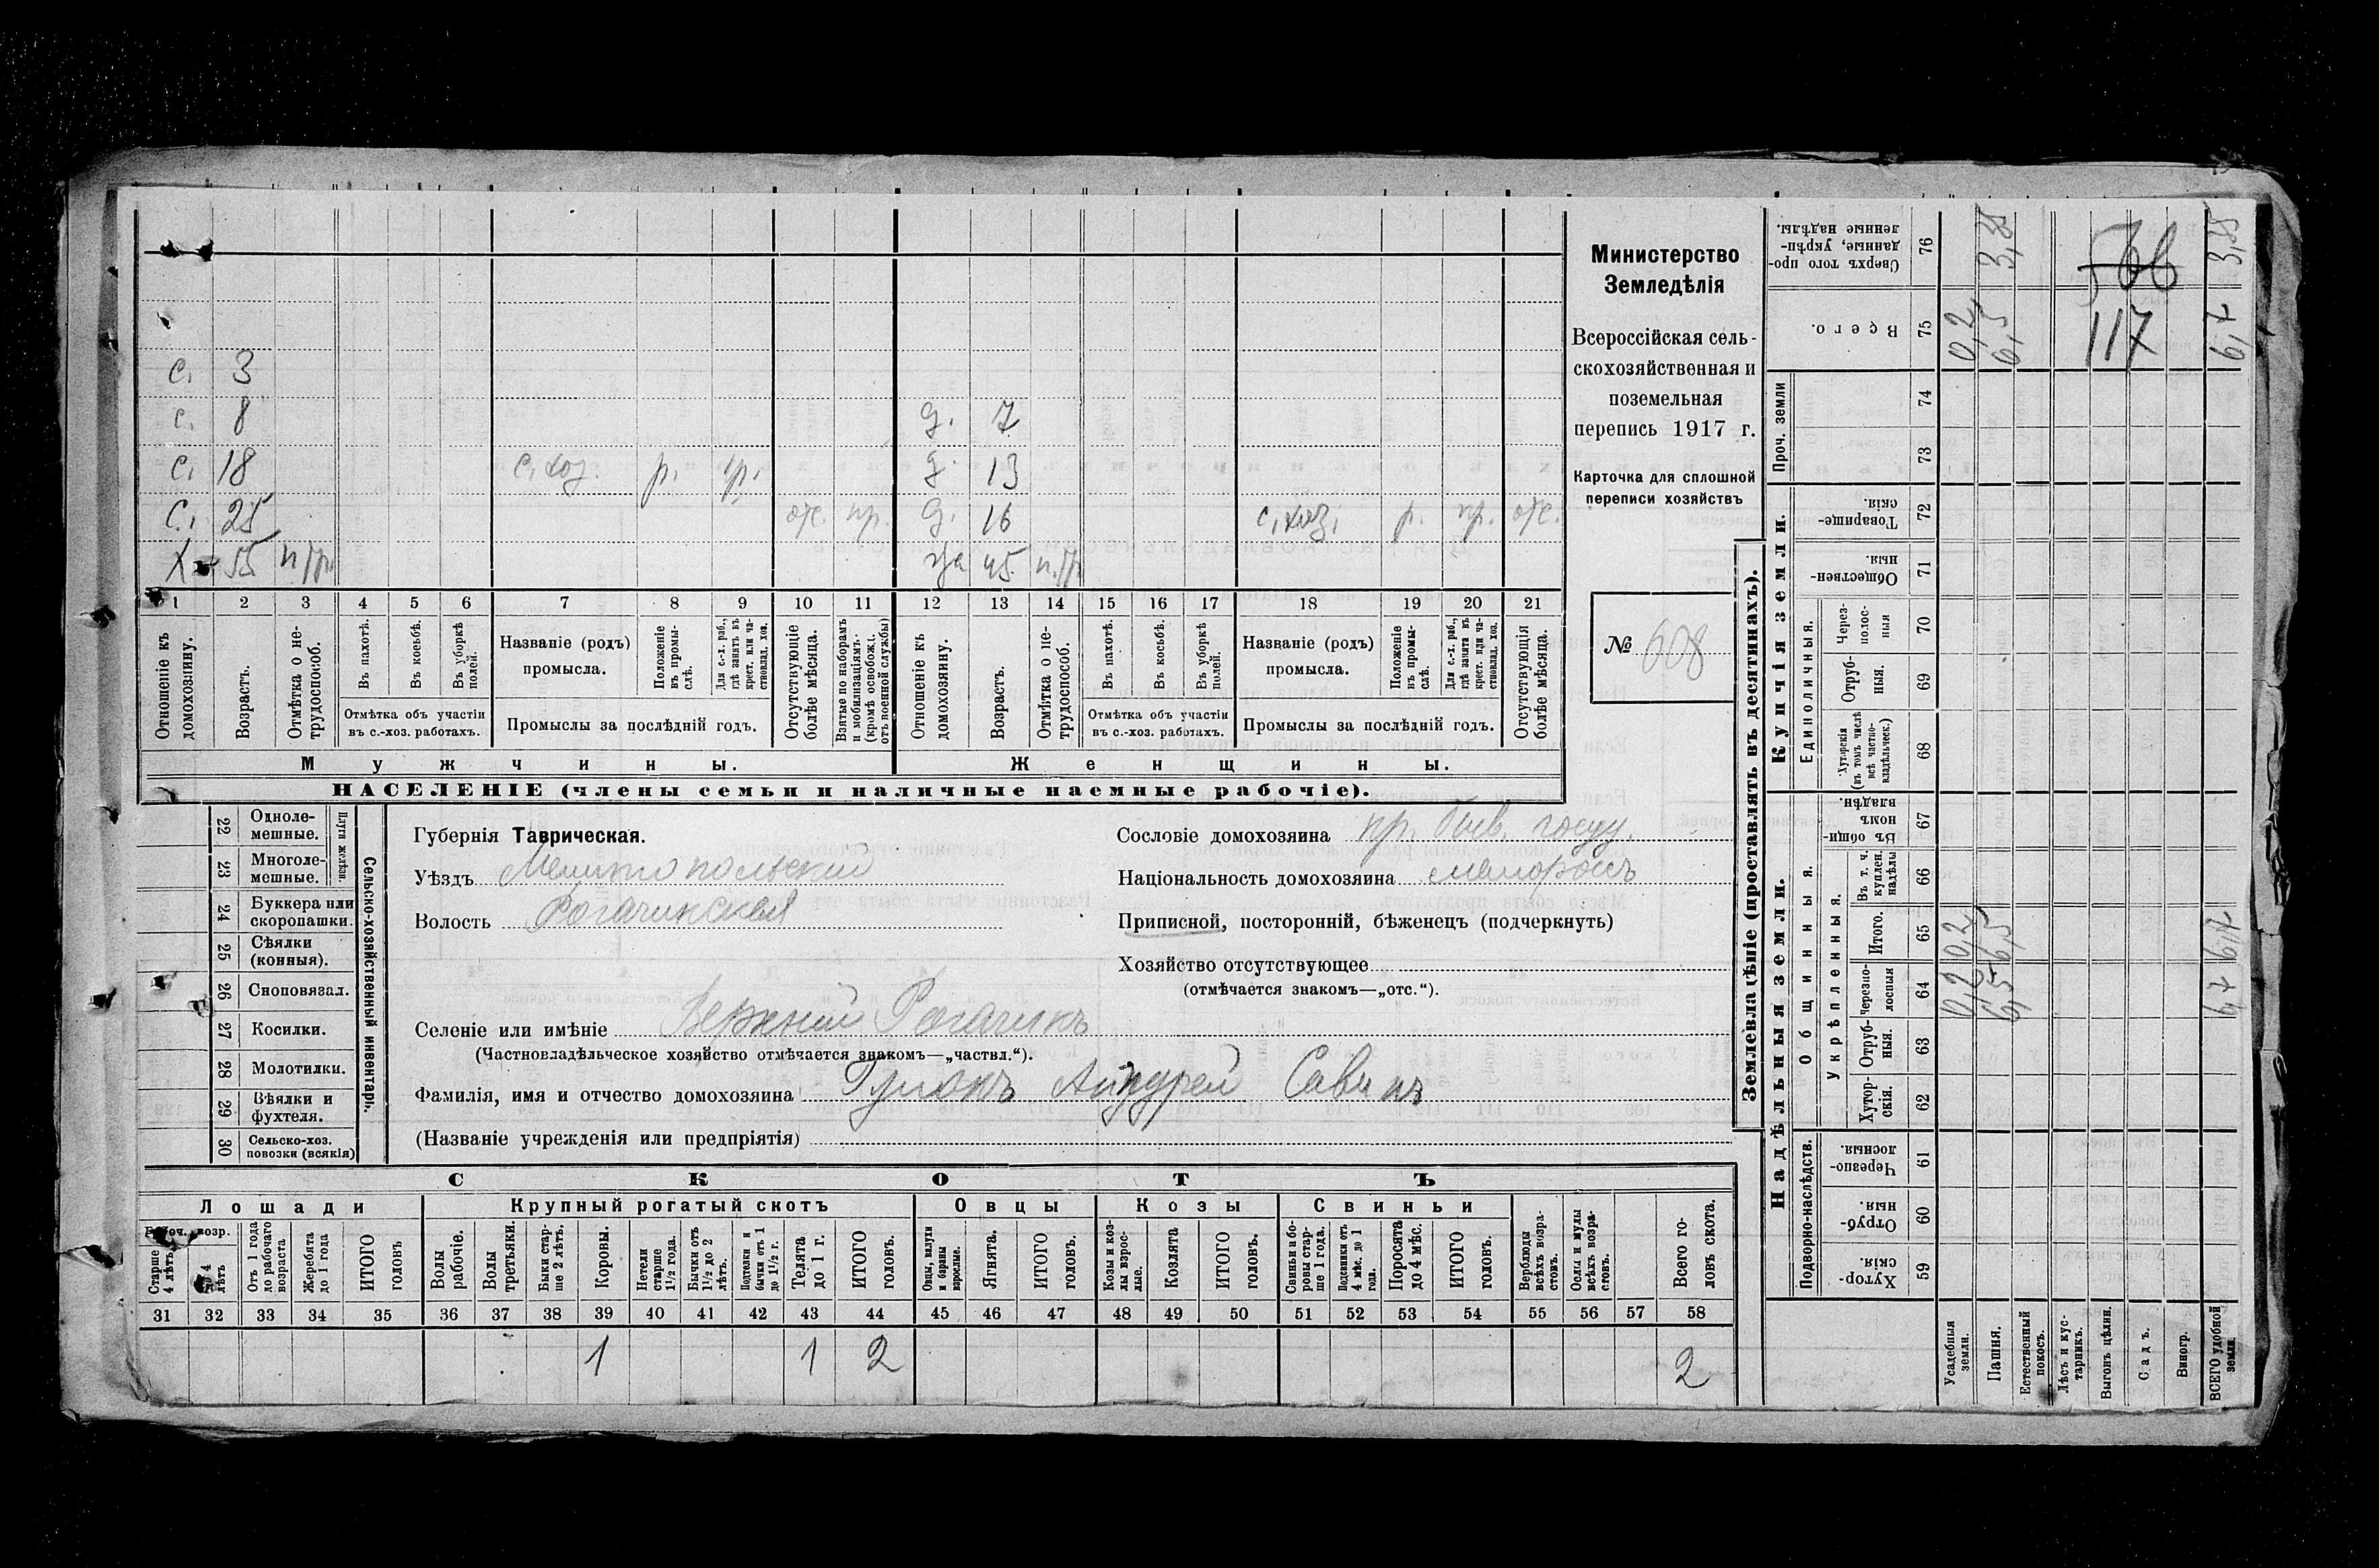 с. 3
с. 8 д. 7
с. 18 с. хоз. р. чр. д. 13
с. 25 отс. пр. д. 16 с. хоз. р. чр. отс.
Х 55 н/тр. 45 н.тр.
1 2 3 4 5 6 7 8 9 10 11 12 13 14 15 16 17 18 19 20 21
Отношеніе къ домохозяину.
Возрастъ.
Отмѣтка о не-трудоспособ.
Въ пахотѣ.
Въ косьбѣ.
Въ уборкѣ полей.
Отмѣтка объ участіи въ с.-хоз. работахъ.
Названіе (родъ) промысла.
Положеніе въ промы-слѣ.
Для с.-х. раб., гдѣ занятъ въ крест. или ча-стновлад. хоз.
Промыслы за послѣдній годъ.
Отсутствующіе болѣе мѣсяца.
Взятые по наборамъ и мобилизаціямъ (кромѣ освобожд. отъ военной службы)
Отношеніе къ домохозяину.
Возрастъ.
Отмѣтка о не-трудоспособ.
Въ пахотѣ.
Въ косьбѣ.
Въ уборкѣ полей.
Отмѣтка объ участіи въ с.-хоз. работахъ.
Названіе (родъ) промысла.
Положеніе въ промы-слѣ.
Для с.-х. раб., гдѣ занята въ крест. или ча-стновлад. хоз.
Промыслы за послѣдній годъ.
Отсутствующія болѣе мѣсяца.
Мужчины. Женщины.
НАСЕЛЕНІЕ (члены семьи и наличные наемные рабочіе).
Министерство
Земледѣлія
Всероссійская сель-
скохозяйственная и
поземельная
перепись 1917 г.
Карточка для сплошной
переписи хозяйствъ
№ 608
Сельско-хозяйственный инвентарь.
Плуги желѣзн.
22 Одноле-мешные.
23 Многоле-мешные.
24 Буккера или скоропашки.
25 Сѣялки (конныя).
26 Сноповязал.
27 Косилки.
28 Молотилки.
29 Вѣялки и фухтеля.
30 Сельско-хоз. повозки (всякія)
Губернія Таврическая.
Уѣздъ Мелитопольский
Волость Рогачинская
Селеніе или имѣніе Верхній Рогачикъ
(Частновладѣльческое хозяйство отмѣчается знакомъ—„частвл.“).
Фамилія, имя и отчество домохозяина Андрей Савинъ
(Названіе учрежденія или предпріятія)
Сословіе домохозяина
Національность домохозяина малороссъ
Приписной, посторонній, бѣженецъ (подчеркнуть)
Хозяйство отсутствующее
(отмѣчается знакомъ—„отс.“).
СКОТЪ
Лошади Крупный рогатый скотъ Овцы Козы Свиньи
Рабоч. возр.
Старше 4 лѣтъ
до 4 лѣтъ
Отъ 1 года до рабочаго возраста
Жеребята до 1 года
ИТОГО головъ
Волы рабочіе.
Волы третьяки.
Быки стар-ше 2 лѣтъ.
Коровы.
Нетели старше 1½ года.
Бычки отъ 1½ до 2 лѣтъ.
Подтелки и бычки отъ 1 до 1½ г.
Телята до 1 г.
ИТОГО головъ.
Овцы, валухи и бараны взрослые.
Ягнята.
ИТОГО головъ.
Козы и коз-лы взрос-лые.
Козлята
ИТОГО головъ.
Свиньи и бо-ровы стар-ше 1 года.
Подсвинки отъ 4 мѣс. до 1 года.
Поросята до 4 мѣс.
ИТОГО головъ.
Верблюды всѣхъ возра-стовъ.
Ослы и мулы всѣхъ возра-стовъ.
Всего го-ловъ скота.
31 32 33 34 35 36 37 38 39 40 41 42 43 44 45 46 47 48 49 50 51 52 53 54 55 56 57 58
1 1 2 2
Землевладѣніе (проставлять въ десятинахъ).
Надѣльныя земли. Купчія земли.
Проч. земли
Сверхъ того про-данные, укрѣп-ленные надѣлы. 76 3,85 3,85
566
Всего. 75 0,2 6,5 6,7
117
74
73
Товарище-скія. 72
Обществен-ныя. 71
Единоличныя.
Через-полос-ныя 70
Отруб-ныя. 69
Хуторскія (въ томъ числѣ всѣ частно-владѣльческ.) 68
Общинныя.
Въ общи-номъ владѣн. 67
Укрѣпленныя.
Въ т. ч. куплен. надѣлы 66
Итого. 65 0,2 6,5 6,7
черезпо-лосныя 64 0,2 6,5 6,7
Отруб-ныя. 63
Хутор-скія. 62
Подворно-наслѣдств.
Черезпо-лосныя. 61
Отруб-ныя. 60
Хутор-скія. 59
Усадебныя земли.
Пашня.
Естественный покосъ.
Лѣсъ и кус-тарникъ.
Выгонъ цѣлин.
Садъ.
Виногр.
ВСЕГО удобной земли.